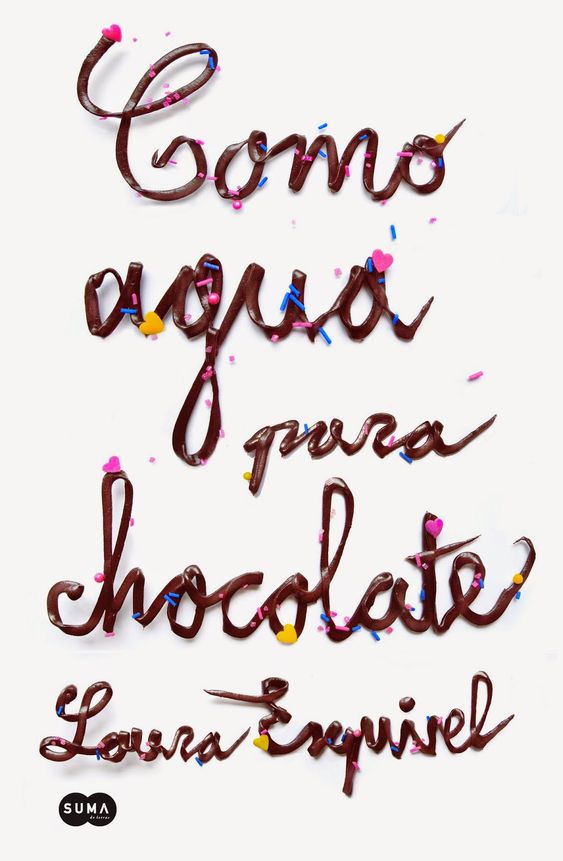 Como
agua
para
chocolate
Laura Esquivel
SUMA
de letras